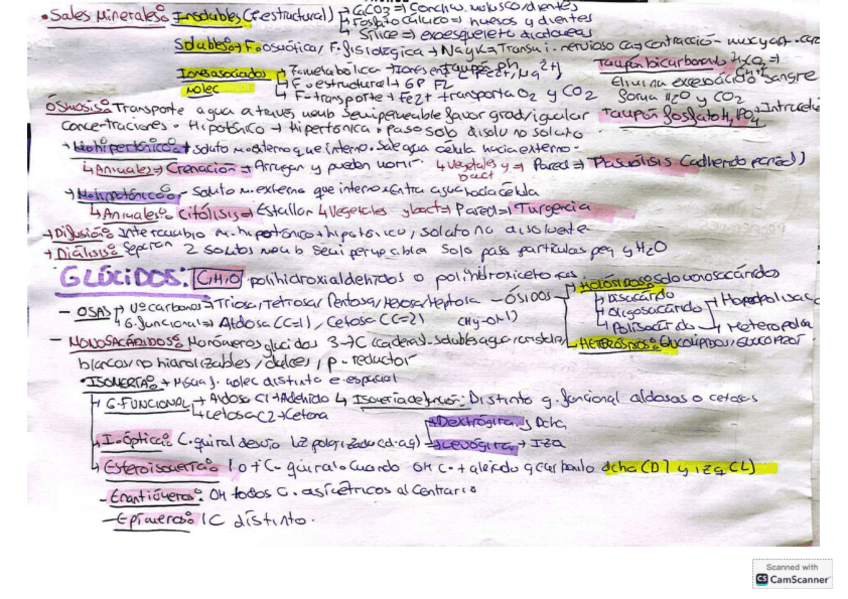 • Sales Minerales: Insolubles (F. estructural) → CaCO3 ⇒ Conchas moluscos/dientes
→ Fosfato Cálcico ⇒ huesos y dientes
→ Sílice ⇒ exoesqueleto diatomeas
Solubles → F. osmótica / F. fisiológica → Na y K → Transm i. nervioso Ca → contracción
Ion asociados molec → F. metabólica → tampón ph
→ F. estructural → GP FL
→ F. transporte → Fe2+ transporta O2 y CO2
Tampón bicarbonato H2CO3 =
Elimina exceso ácido sangre
forma H2O y CO2
Tampón fosfato H2PO4
Ósmosis: Transporte agua a través memb semipermeable favor grad/igualar
concentraciones. Hipotónico → hipertónica. Paso solo disolv no soluto
→ M. hipertónico → soluto m. externo que interno. Sale agua célula hacia externo.
↳ Animales → Crenación → Arrugar y pueden morir. ↳ Vegetales y bact → Pared ⇒ Plasmólisis (adhendo pared)
→ M. hipotónico → Soluto m. externo que interno entra agua hacia célula
↳ Animales: Citólisis → Estallar ↳ Vegetales y bact → Pared → Turgencia
→ Difusión: Intercambio m. hipertónico → hipotónico, soluto no disolvente
→ Diálisis: Separan 2 solutos memb semipermeable solo pasa partículas peq y H2O
GLÚCIDOS: CHO polihidroxialdehidos o polihidroxicetonas
- OSAS → Nº carbonos → Triosa, Tetrosa, Pentosa, Hexosa, Heptosa
↳ G. funcional → Aldosa (C=1), Cetosa (C=2)
- ÓSIDOS → HOLÓSIDOS: Solo monosacáridos
→ Disacárido
→ Oligosacárido
→ Polisacárido → Homopolisac
→ Heteropolisa
→ HETERÓSIDOS:
- MONOSACÁRIDOS: Monómeros glúcidos 3-7C (cadena). solubles agua, cristales,
blancos no hidrolizables, dulces, p. reductor
• ISOMERÍA: → Misma f. molec distinto e. espacial
→ G. FUNCIONAL → Aldosa C1 → Aldehído ↳ Isomería de función: Distinto g. funcional aldosas o cetosas
→ Cetosa C2 → Cetona
→ I. óptica: C. quiral desvío luz polarizada → Dextrógira → Dcha
→ Levógira → Izq
→ Esteroisomería 1 o + C. quiral. Cuando OH C. + alejado g carbonilo dcha (D) y izq (L)
- Enantiómeros: OH todos C. asimétricos al contrario
- Epímeros: 1C distinto.
Scanned with
CS CamScanner